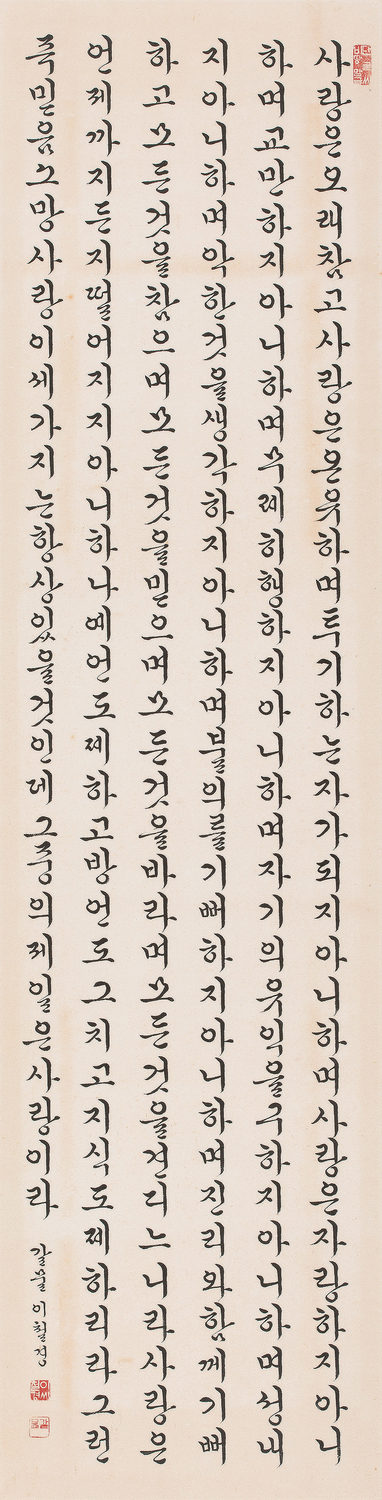 사랑은오래참고사랑은온유하며투기하는자가되지아니하며사랑은자랑하지아니
하며교만하지아니하며무례히행하지아니하며자기의유익을구하지아니하며성내
지아니하며악한것을생각하지아니하며불의를기뻐하지아니하며진리와함께기뻐
하고모든것을참으며모든것을믿으며모든것을바라며모든것을견디느니라사랑은
언제까지든지떨어지지아니하나예언도폐하고방언도그치고지식도폐하리라그런
즉믿음소망사랑이세가지는항상있을것인데그중의제일은사랑이라
갈물이철경